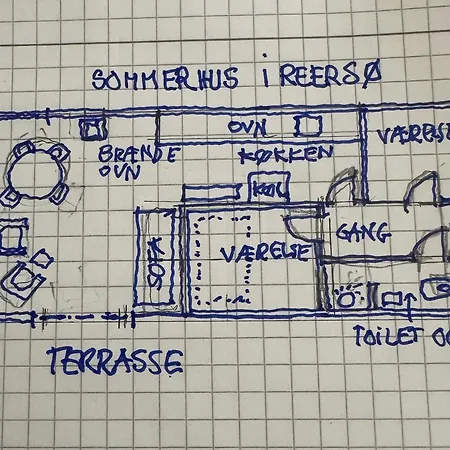 SOMMERHUS i REERSØ
OVN
VÆRELSE
BRÆNDE
OVN
KØKKEN
KØL
SOFA
VÆRELSE
GANG
TOILET OG
TERRASSE